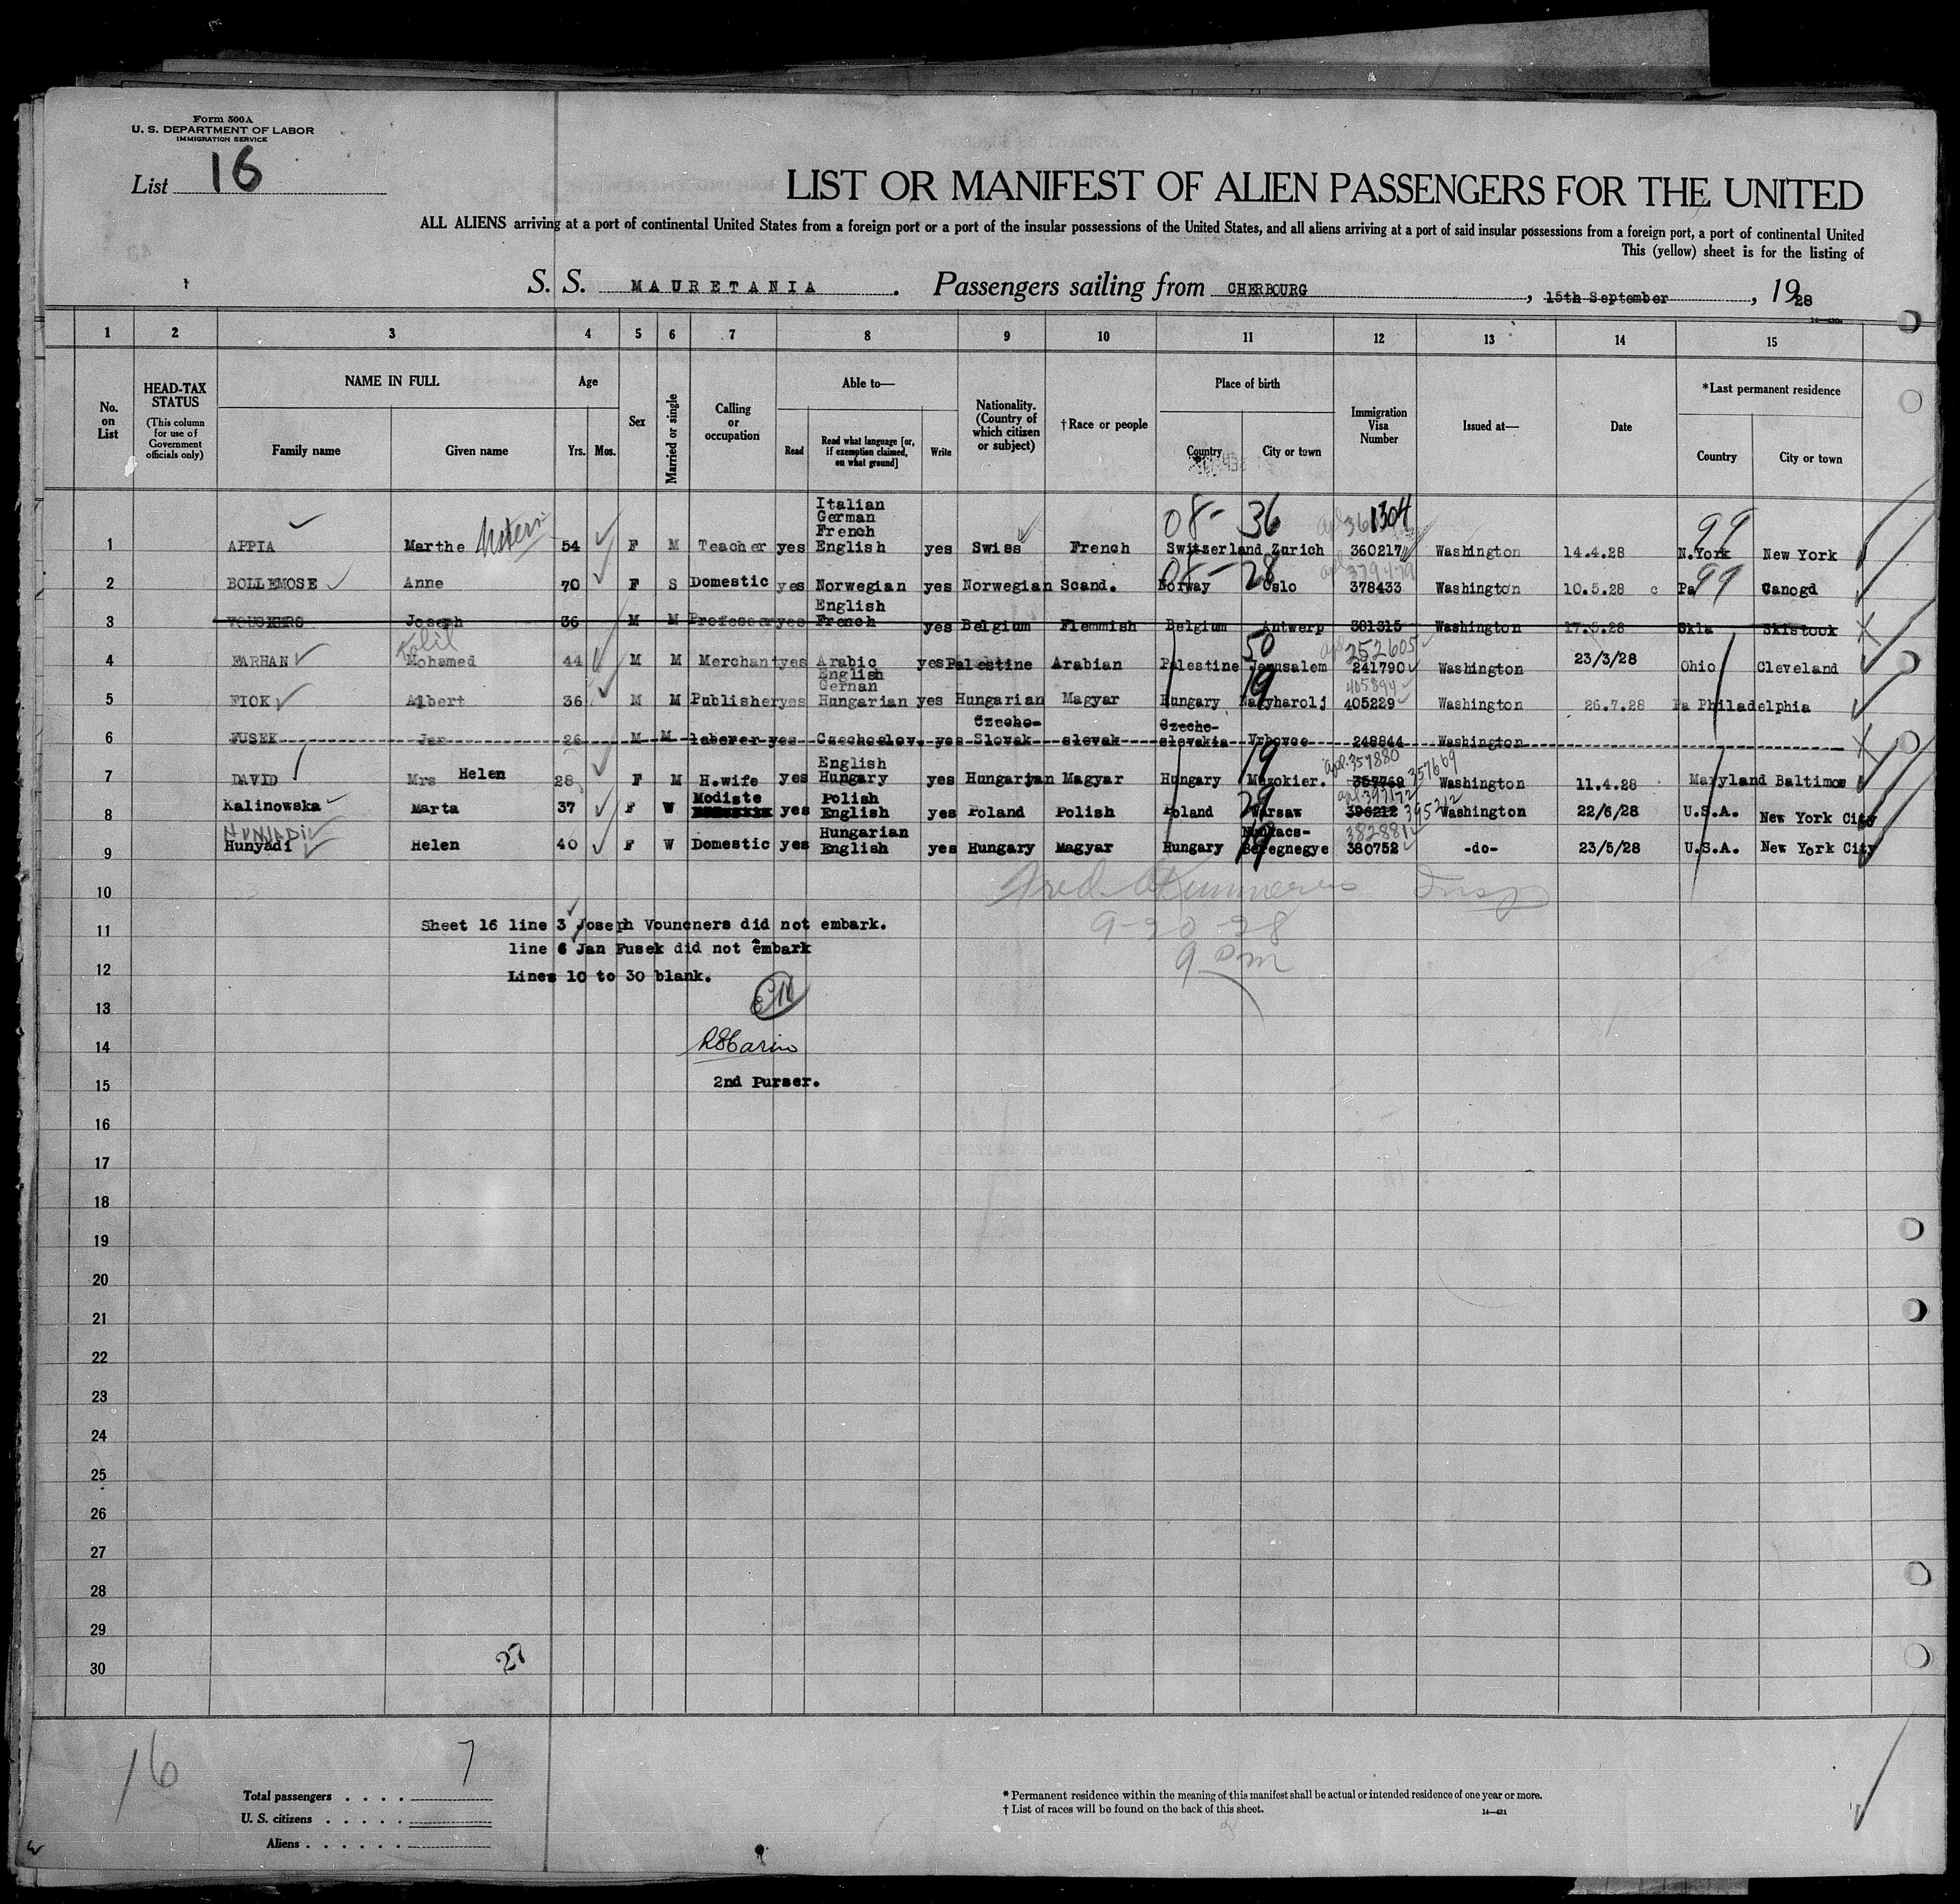 Form 500A
U. S. DEPARTMENT OF LABOR
IMMIGRATION SERVICE
List 16
LIST OR MANIFEST OF ALIEN PASSENGERS FOR THE UNITED
ALL ALIENS arriving at a port of continental United States from a foreign port or a port of the insular possessions of the United States, and all aliens arriving at a port of said insular possessions from a foreign port, a port of continental United
This (yellow) sheet is for the listing of
S. S. MAURETANIA . Passengers sailing from CHERBOURG , 15th September , 1928
1 2 3 4 5 6 7 8 9 10 11 12 13 14 15
No. on List
HEAD-TAX STATUS (This column for use of Government officials only)
NAME IN FULL Family name Given name
Age Yrs. Mos.
Sex
Married or single
Calling or occupation
Able to— Read Read what language [or, if exemption claimed, on what ground] Write
Nationality. (Country of which citizen or subject)
†Race or people
Place of birth Country City or town
Immigration Visa Number
Issued at—
Date
*Last permanent residence Country City or town
08- 36 361304 99
1 APPIA Marthe 54 F M Teacher yes Italian German French English yes Swiss French Switzerland Zurich 360217 Washington 14.4.28 N.York New York
08- 28 379479 99
2 BOLLEMOSE Anne 70 F S Domestic yes Norwegian yes Norwegian Scand. Norway Oslo 378433 Washington 10.5.28 c Pa Canogd
3 Joseph 36 M M Professor yes English French yes Belgium Flemmish Belgium Antwerp 381315 Washington 17.5.28 Okla Skistook
50 252605
4 FARHAN Mohamed 44 M M Merchant yes Arabic English yes Palestine Arabian Palestine Jerusalem 241790 Washington 23/3/28 Ohio Cleveland
19 405894
5 FIOK Albert 36 M M Publisher yes German Hungarian yes Hungarian Magyar Hungary 405229 Washington 26.7.28 Pa Philadelphia
6 FUSEK Jan 26 M M laborer yes Czechoslov. yes Czecho-Slovak slovak Czecho-slovakia Vrbovce 248844 Washington
19 apl.357880 357669
7 DAVID Mrs Helen 28 F M H.wife yes English Hungary yes Hungarian Magyar Hungary Mezokier. 357769 Washington 11.4.28 Maryland Baltimoe
apl.397172 395212
8 Kalinowska Marta 37 F W Modiste yes Polish English yes Poland Polish Poland Warsaw 396212 Washington 22/6/28 U.S.A. New York City
HUNJADI 19 382881
9 Hunyadi Helen 40 F W Domestic yes Hungarian English yes Hungary Magyar Hungary 380752 -do- 23/5/28 U.S.A. New York City
10
Insp
11 Sheet 16 line 3 Joseph Vouncners did not embark.
9-20-28
line 6 Jan Fusek did not embark
9 pm
12 Lines 10 to 30 blank.
13
14
15 2nd Purser.
16
17
18
19
20
21
22
23
24
25
26
27
28
29
27
30
16
7
Total passengers . . . .
U. S. citizens . . . . .
Aliens . . . . . .
* Permanent residence within the meaning of this manifest shall be actual or intended residence of one year or more.
† List of races will be found on the back of this sheet.
14—421